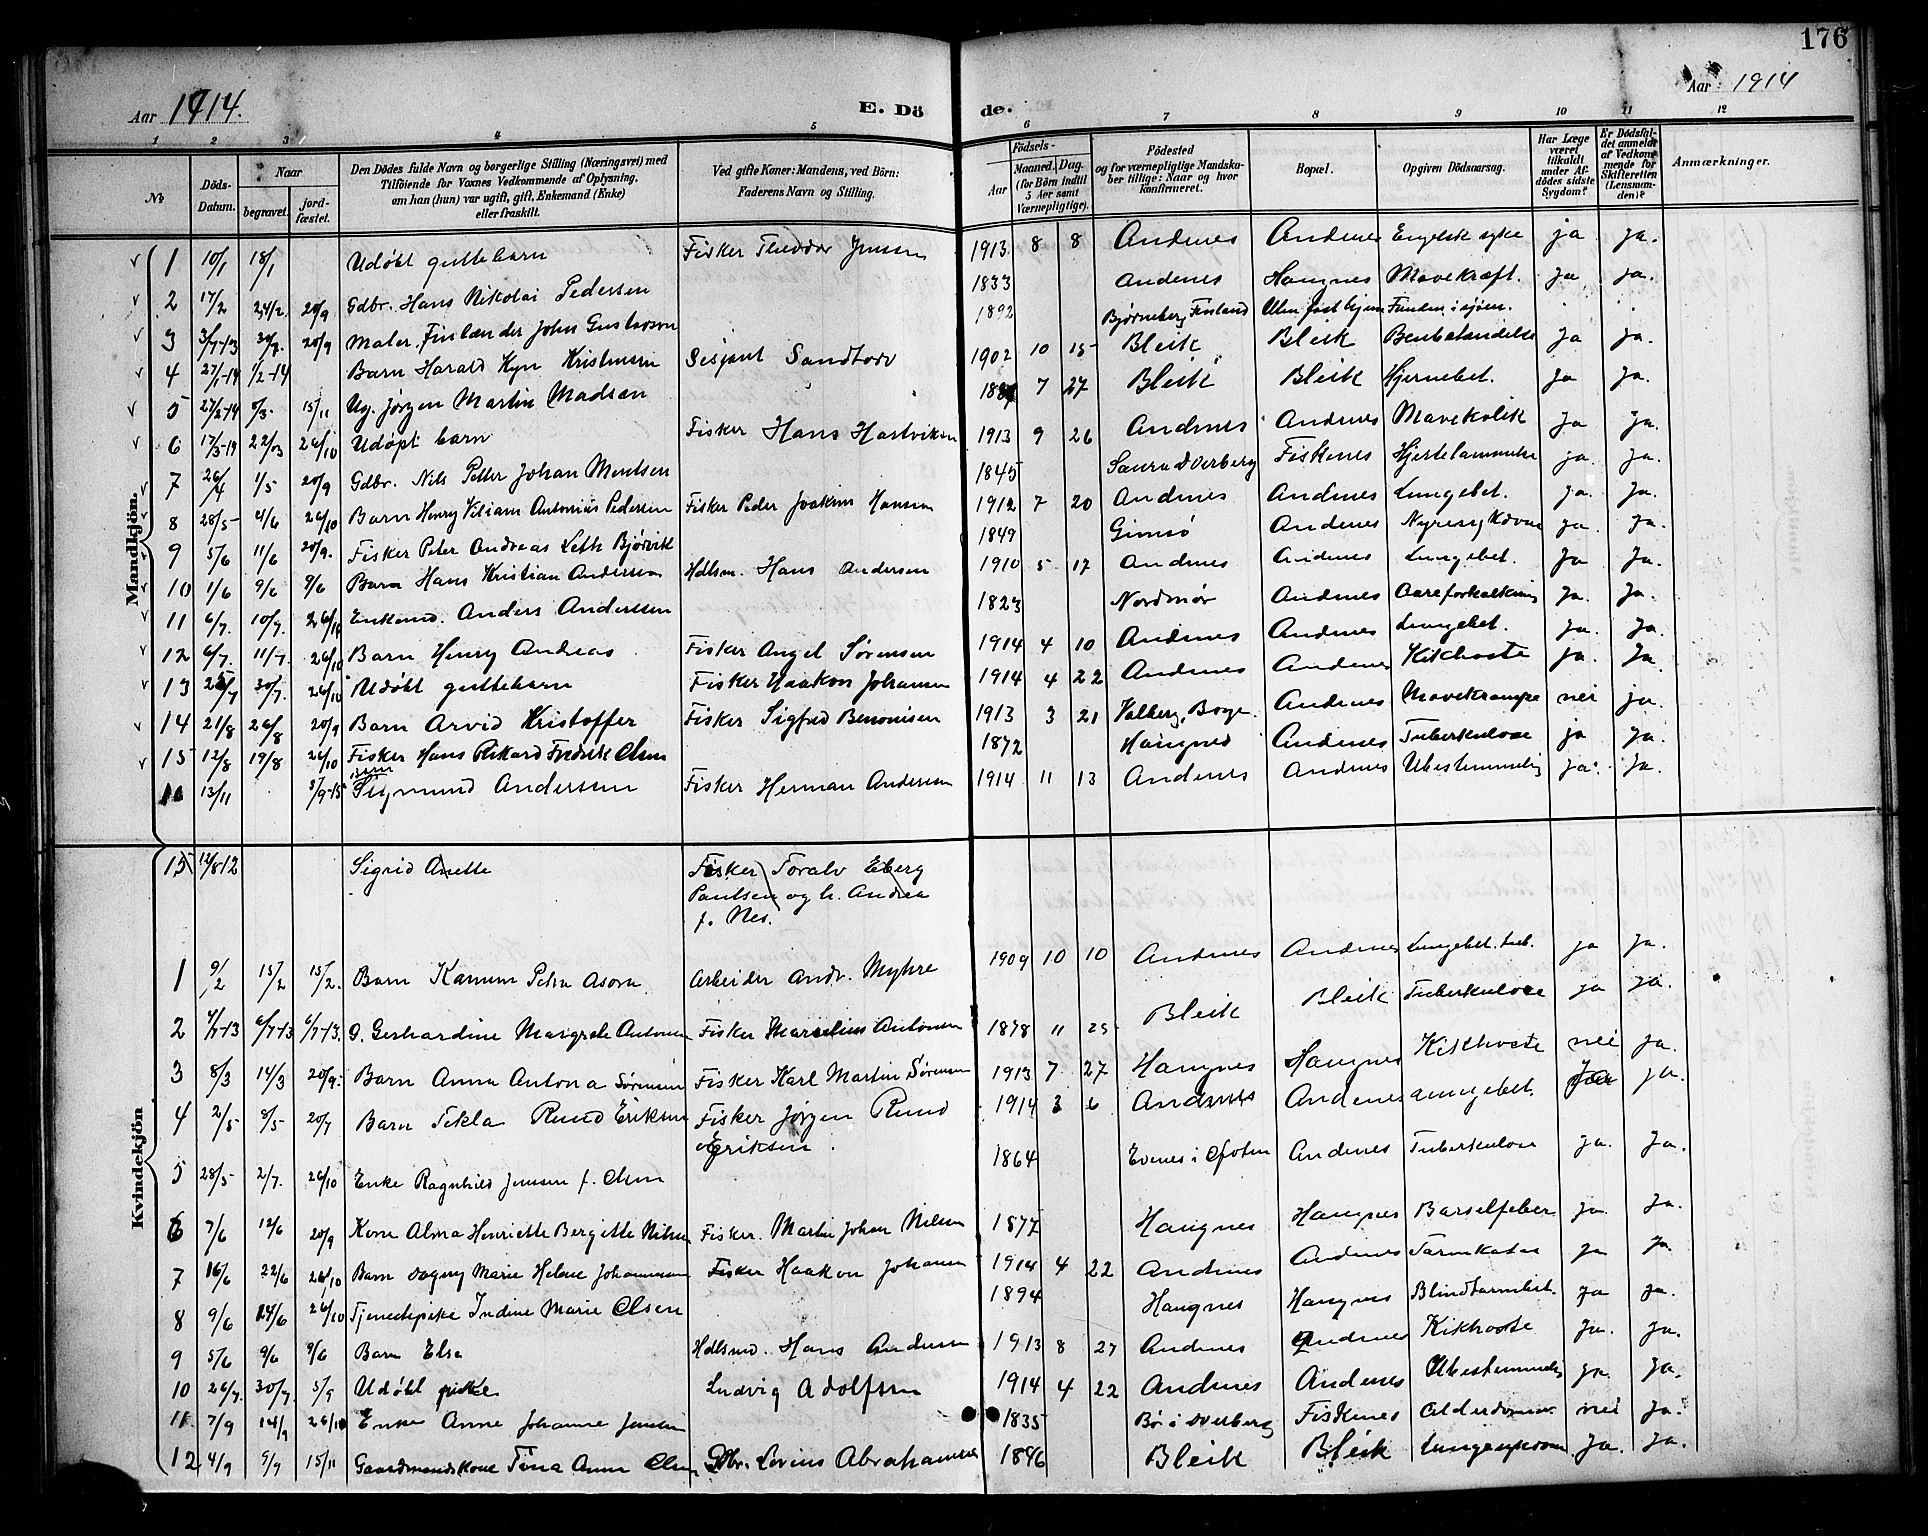 176
Aar 1914.
E. Dö
de.
Aar 1914
1 2 3 4 5 6 7 8 9 10 11 12
No
Döds-Datum.
Naar
begravet.
jord-fæstet.
Den Dödes fulde Navn og borgerlige Stilling (Næringsvei) med
Tilföiende for Voxnes Vedkommende af Oplysning,
om han (hun) var ugift, gift, Enkemand (Enke)
eller fraskilt.
Ved gifte Koner: Mandens, ved Börn:
Faderens Navn og Stilling.
Födsels-
Aar
Maaned. Dag.
(for Börn indtil
5 Aar samt
Værnepligtige).
Födested
og for værnepligtige Mandska-
ber tillige: Naar og hvor
konfirmeret.
Bopæl.
Opgiven Dödsaarsag.
Har Læge
været
tilkaldt
under Af-
dödes sidste
Sygdom?
Er Dödsfal-
det anmeldt
af Vedkom-
mende for
Skifteretten
(Lensman-
den)?
Anmærkninger.
Mandkjön.
1 10/1 18/1 Udøbt guttebarn Fisker Theodor Jensen 1913 8 8 Andenes Andenes Engelsk syke ja ja.
2 17/2 24/2 20/9 Gdbr. Hans Nikolai Pedersen 1833 Andenes Haugnes Mavekræft. ja ja.
3 3/7-13 30/7. 20/9 Maler, Finlænder John Gustavson 1892 Bjørneborg, Finland Uten fast hjem Funden i sjøen.
4 27/1-14 1/2-14 Barn Harald Kyn Kristensen Sersjant Sandtorv 1902 10 15 Bleik Bleik Benbetændelse ja ja.
5 27/2-14 8/3. 15/11 Ug. Jørgen Martin Madsen 7 27 Bleik Bleik Hjernebet. ja ja.
6 17/3-14 22/03 26/10 Udøpt barn Fisker Hans Hartviksen 1913 9 26 Andenes Andenes Mavekolik ja ja.
7 26/4 1/5 20/9 Gdbr. Nils Petter Johan Mentsen 1845 Saura Dverberg Fiskenes Hjertelammelse ja. ja.
8 28/5 4/6 26/10 Barn Henry Viliam Antonius Pedersen Fisker Peder Joakim Hansen 1912 7 20 Andenes Andenes Lungebet. ja. ja.
9 5/6 11/6 20/9. Fisker Peter Andreas Leth Bjørvik 1849 Gimsø Andenes Nyresygdom ja. ja.
10 1/6 9/6 9/6 Barn Hans Kristian Andersen Hdlsm. Hans Andersen 1910 5 17 Andenes Andenes Lungebet. ja ja.
11 6/7. 10/7. 26/10 Enkemd. Anders Anderssen 1823 Nordmør Andenes Aareforkalkning ja. ja.
12 6/7. 11/7. 26/10 Barn Henry Andreas Fisker Angel Sørensen 1914 4 10 Andenes Andenes Lungebet. ja. ja.
13 25/7 30/7. 26/10 Udøbt guttebarn Fisker Haakon Johansen 1914 4 22 Andenes Andenes Kikhoste ja. ja
14 21/8 26/8 20/9 Barn Arvid Kristoffer Fisker Sigfred Benonisen 1913 3 21 Valberg, Borge. Andenes Mavekrampe nei ja.
15 12/8 19/8 26/10 Fisker Hans Rikard Fredrik Olsen 1872 Haugnes Andenes Tuberkulose ja ja.
16 13/11 3/9-15 barn Sigmund Anderssen Fisker Herman Andersen 1914 11 13 Andenes Andenes Ubestemmelig ja. ja.
Kvindekjön
15 12/8 12 Sigrid Anette Fisker Toralv Eberg
Paulsen og h. Andrea
f. Nes.
1 9/2 15/2 15/2. Barn Karenn Petra Asora Arbeider Andr. Myhre 1909 10 10 Andenes Andenes Lungebet. tub. ja ja.
2 4/7-13 6/7-13 6/7-13. G. Gerhardine Margrete Antonsen Fisker Marselius Antonsen 1878 11 25 Bleik Bleik Tuberkulose ja ja.
3 8/3 14/3 20/9. Barn Anna Antona Sørensen Fisker Karl Martin Sørensen 1913 7 27 Haugnes Haugnes Kikhoste nei ja.
4 2/5 8/5 20/7 Barn Tekla Rund Eriksen Fisker Jørgen Rund
Eriksen 1914 3 6 Andenes Andenes Lungebet. ja.
5 28/5 2/7. 26/10 Enke Ragnhild Jensen f. Olsen 1864 Evenes i Ofoten Andenes Tuberkulose ja. ja.
6 7/6 12/6 20/9 Kone Alma Henriette Bergitte Nilsen Fisker. Martin Johan Nilsen 1877 Haugnes Haugnes Barselfeber ja. ja.
7 16/6 22/6 26/10 Barn Dagny Marie Helene Johannessen Fisker Haakon Johansen 1914 4 22 Andenes Andenes Tarmkatar ja ja.
8 9/6 14/6 26/10 Tjenestepike Indine Marie Olsen 1894 Haugnes Haugnes Blindtarmbet. ja ja.
9 5/6 9/6 9/6 Barn Elsa Hdlsmd. Hans Andersen 1913 8 27 Andenes Andenes Kikhoste ja. ja.
10 26/7. 30/7 5/9 Udøbt pike Ludvig Adolfsen 1914 4 22 Andenes Andenes Ubestemmelig ja. ja.
11 7/9 14/9 26/10 Enke Anne Johanne Jensen 1835 Bø i Dverberg Fiskenes Alderdom nei ja.
12 4/9 9/9 15/11 Gaardmandskone Tina Anna Olsen Gdbr. Lovins Abrahamsen 1846 Bleik Bleik Lungesykdom ja. ja.